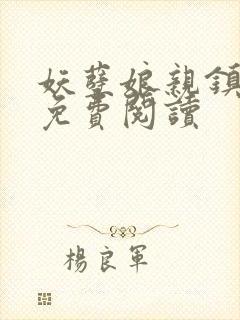 妖孽娘親鎮
免費閱讀
楊良軍